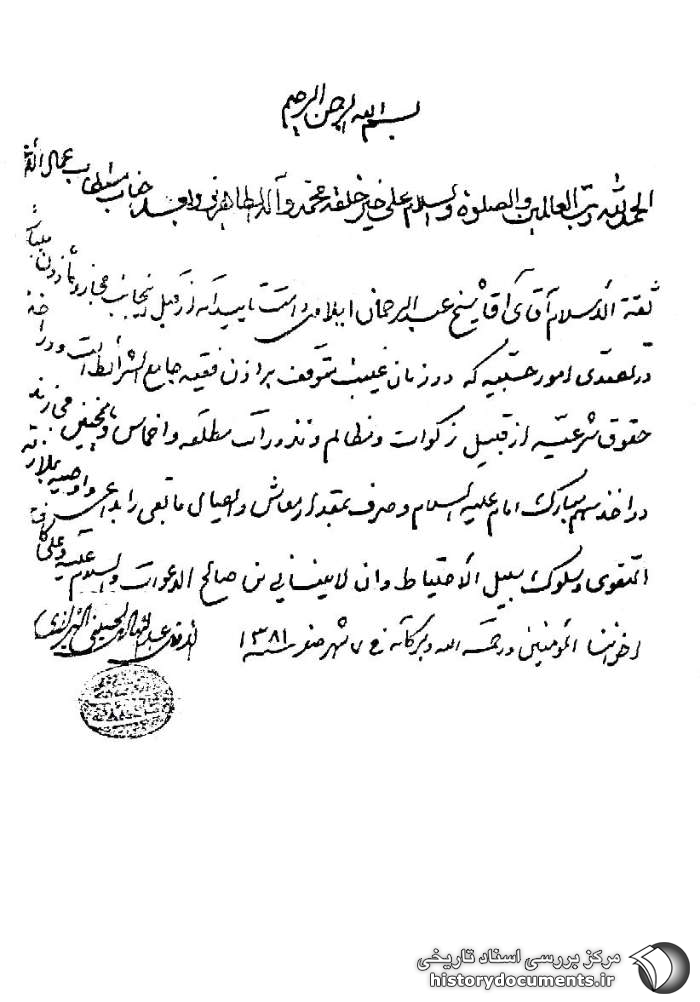 بسم الله الرحمن الرحیم
الحمدلله رب العالمین والصلوة والسلام علی خیر خلقه محمد وآله الطاهرین وبعد جناب مستطاب عماد
ثقة الاسلام آقای آقا شیخ عبدالرحمان دامت تاییداته از قبل اینجانب مجاز و ماذون میباشند
در تصدی امور حسبیه که در زمان غیبت متوقف بر اذن فقیه جامع الشرائط است و در اخذ
حقوق شرعیه از قبیل زکوات و مظالم و نذورات مطلقه و اخماس و همچنین مجازند
در اخذ سهم مبارک امام علیه السلام و صرف بمقدار معاش و ایصال مابقی را بما و اوصیه بملازمة
التقوی وسلوک سبیل الاحتیاط وان لاینسانی من صالح الدعوات والسلام علیه وعلی
اخواننا المؤمنین ورحمة الله وبرکاته فی ۷ شهر صفر سنه ۱۳۸۱
عبدالهادی الحسینی الشیرازی
مرکز بررسی اسناد تاریخی
historydocuments.ir